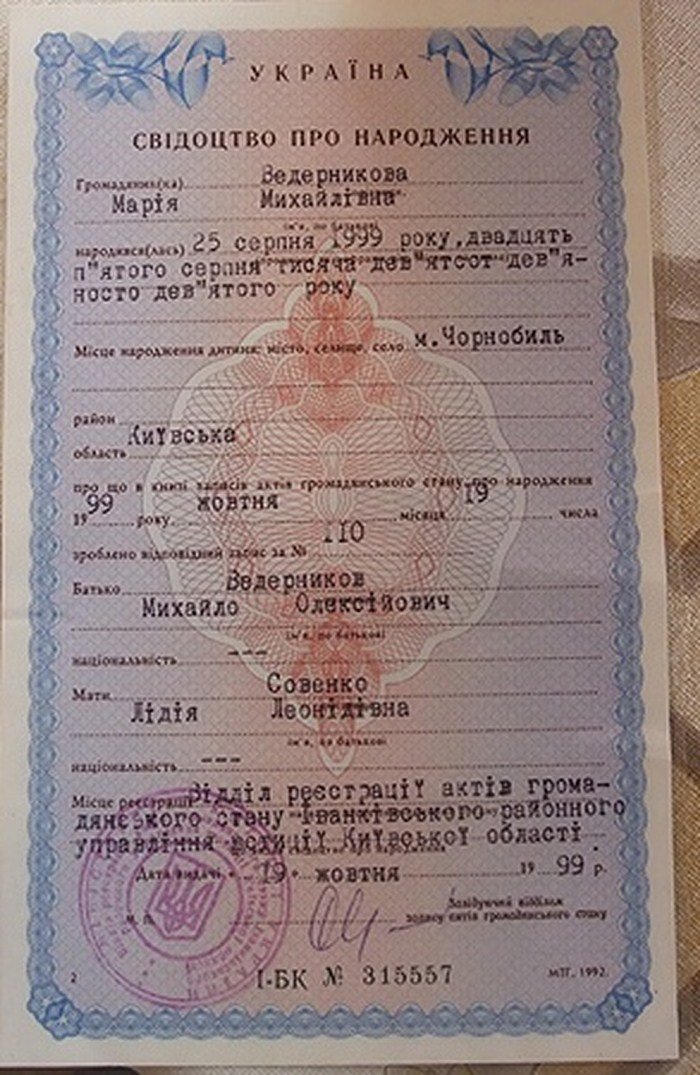 УКРАЇНА
СВІДОЦТВО ПРО НАРОДЖЕННЯ
Громадянин(ка) Ведерникова
Марія Михайлівна
ім'я, по батькові
народився(лась) 25 серпня 1999 року,двадцять
п"ятого серпня тисяча дев"ятсот дев"я-
носто дев"ятого року
Місце народження дитини: місто, селище, село м.Чорнобиль
район
область Київська
про що в книзі записів актів громадянського стану про народження
1999 року жовтня місяця 19 числа
зроблено відповідний запис за № 110
Батько Ведерников
Михайло Олексійович
ім'я, по батькові
національність ---
Мати Совенко
Лідія Леонідівна
ім'я, по батькові
національність ---
Місце реєстрації Відділ реєстрації актів грома-
дянського стану Іванківського районного
управління юстиції Київської області
Дата видачі « 19 » жовтня 1999 р.
М. П.
Завідуючий відділом
запису актів громадянського стану
2
І-БК № 315557
МТГ, 1992.